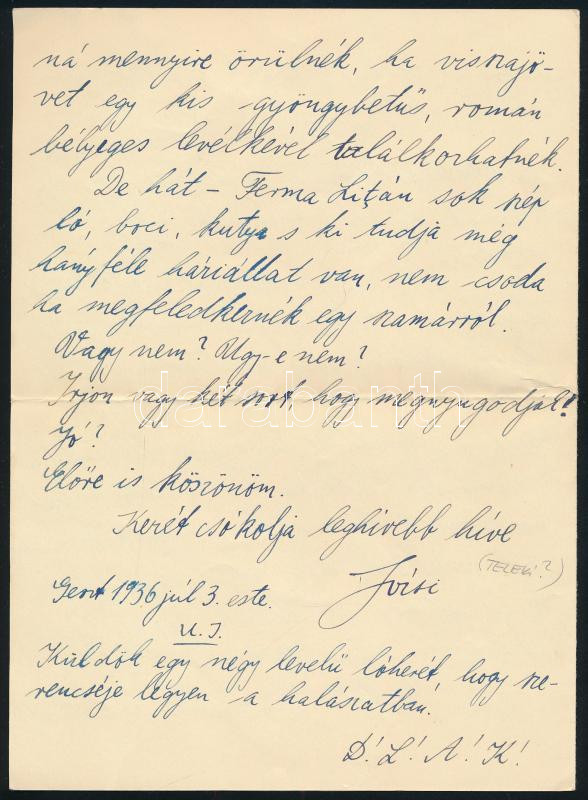 ná mennyire örülnék, ha visszajö-
vet egy kis gyöngybetüs, román
bélyeges levélkével találkozhatnék.
De hát – Ferma Liţán sok szép
ló, boci, kutya s ki tudja még
hányféle háziállat van, nem csoda
ha megfeledkeznék egy szamárról.
Vagy nem? Ugy-e nem?
Irjon vagy két sort, hogy megnyugodjak!
Jó?
Előre is köszönöm.
Kezét csókolja leghivebb hive
(TELEKI?)
1936 júl 3. este.
U.I.
Küldök egy négy levelü lóherét, hogy sze-
rencséje légyen a halászatban.
D! L! A! K!
darabanth